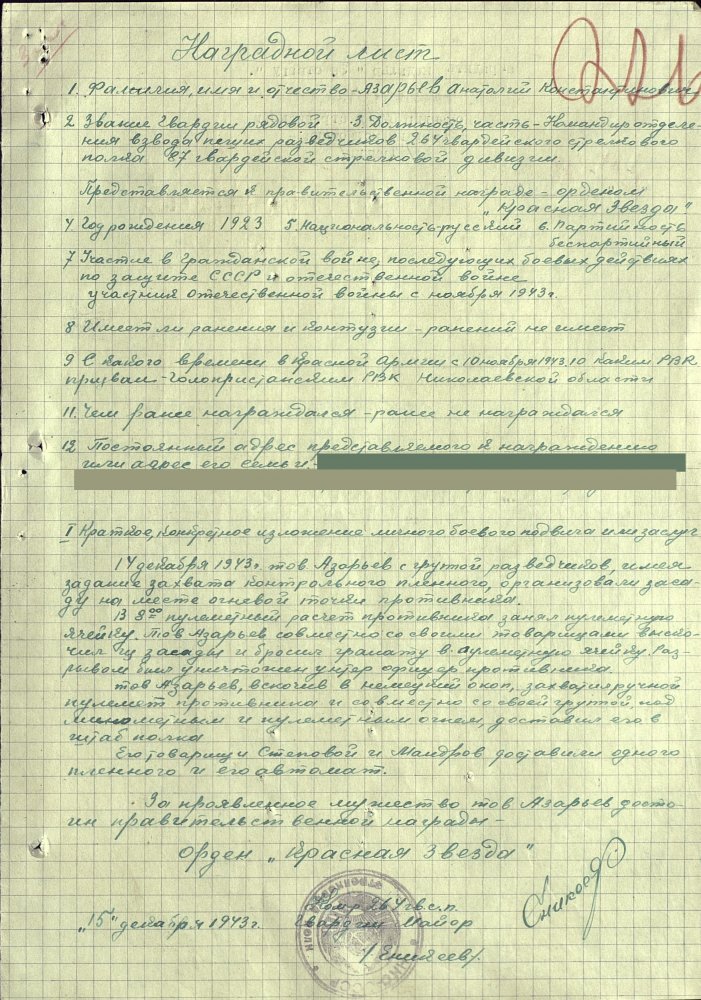 Наградной лист
1. Фамилия, имя и отчество - Азарьев Анатолий Константинович
2 Звание Гвардии рядовой 3. Должность, часть - Командир отделе-
ния взвода пеших разведчиков 264 гвардейского стрелкового
полка 87 гвардейской стрелковой дивизии.
Представляется к правительственной награде - орденом
"Красная Звезда"
4 Год рождения 1923 5. Национальность - русский 6. Партийность
беспартийный
7 Участие в гражданской войне, последующих боевых действиях
по защите СССР и отечественной войне
участник отечественной войны с ноября 1943 г.
8 Имеет ли ранения и контузии - ранений не имеет
9 С какого времени в Красной Армии с 10 ноября 1943. 10 Каким РВК
призван - Голопристанским РВК Николаевской области
11. Чем ранее награждался - ранее не награждался
12 Постоянный адрес представляемого к награждению
или адрес его семьи -
I Краткое, конкретное изложение личного боевого подвига или заслуг
14 декабря 1943 г. тов Азарьев с группой разведчиков, имея
задание захвата контрольного пленного, организовали заса-
ду на месте огневой точки противника.
В 8 00 пулеметный расчет противника занял пулеметную
ячейку. Тов Азарьев совместно со своими товарищами выско-
чил из засады и бросил гранату в пулеметную ячейку. Раз-
рывом был уничтожен унтер офицер противника.
тов Азарьев, вскочив в немецкий окоп, захватил ручной
пулемет противника и совместно со своей группой, под
минометным и пулеметным огнем, доставил его в
штаб полка
Его товарищи Степовой и Мандров доставили одного
пленного и его автомат.
За проявленное мужество тов Азарьев досто-
ин правительственной награды -
орден "Красная Звезда"
Комр 264 гв.с.п.
"15" декабря 1943 г. Гвардии Майор
/Еникеев/.